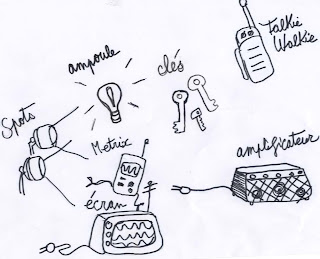 Talkie
Walkie
ampoule
clés
Spots
Metrix
amplificateur
écran